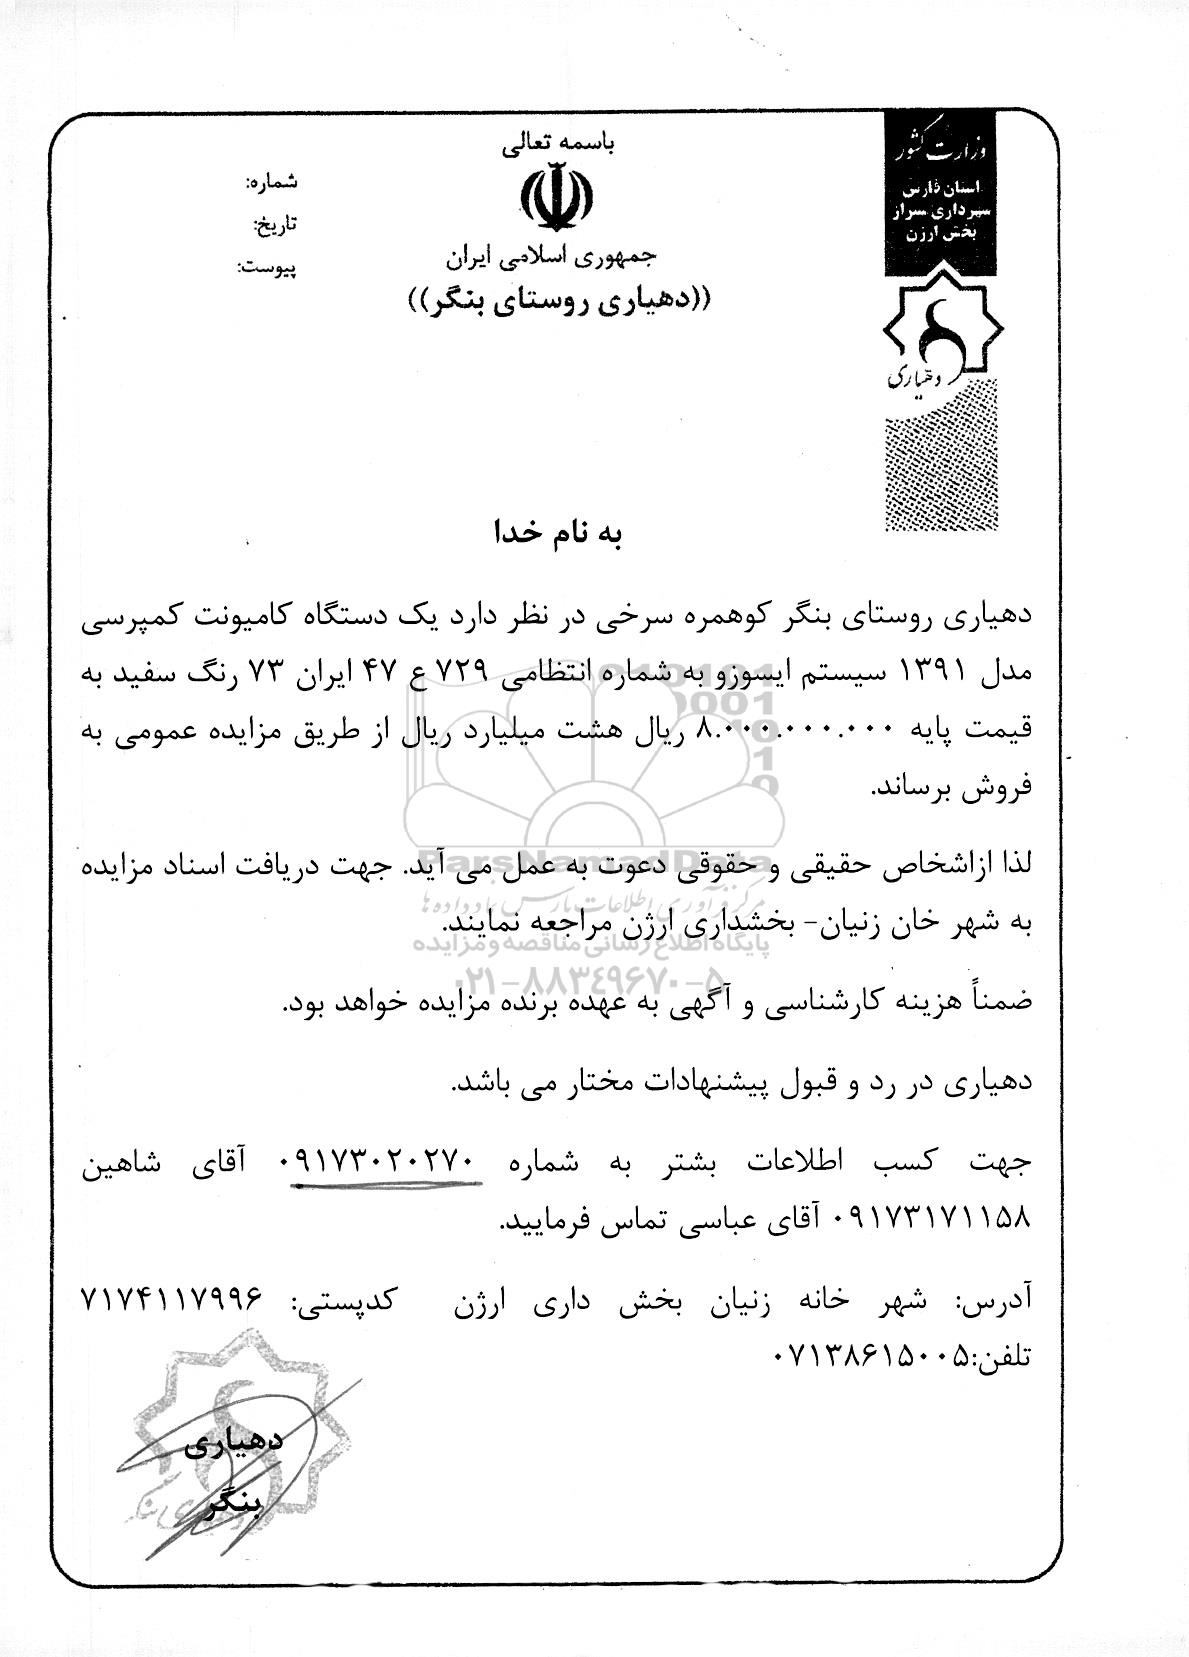 باسمه تعالی
جمهوری اسلامی ایران
((دهیاری روستای بنگر))
شماره:
تاریخ:
پیوست:
وزارت کشور
استان فارس
بخش ارزن
دهیاری
به نام خدا
دهیاری روستای بنگر کوهمره سرخی در نظر دارد یک دستگاه کامیونت کمپرسی
مدل ۱۳۹۱ سیستم ایسوزو به شماره انتظامی ۷۲۹ ع ۴۷ ایران ۷۳ رنگ سفید به
قیمت پایه ۸.۰۰۰.۰۰۰.۰۰۰ ریال هشت میلیارد ریال از طریق مزایده عمومی به
فروش برساند.
لذا ازاشخاص حقیقی و حقوقی دعوت به عمل می آید. جهت دریافت اسناد مزایده
به شهر خان زنیان- بخشداری ارژن مراجعه نمایند.
ضمناً هزینه کارشناسی و آگهی به عهده برنده مزایده خواهد بود.
دهیاری در رد و قبول پیشنهادات مختار می باشد.
جهت کسب اطلاعات بشتر به شماره ۰۹۱۷۳۰۲۰۲۷۰ آقای شاهین
۰۹۱۷۳۱۷۱۱۵۸ آقای عباسی تماس فرمایید.
آدرس: شهر خانه زنیان بخش داری ارژن کدپستی: ۷۱۷۴۱۱۷۹۹۶
تلفن:۰۷۱۳۸۶۱۵۰۰۵
دهیاری
بنگر
ParsNamadData
پایگاه اطلاع رسانی مناقصه و مزایده
۰۲۱-۸۸۳۴۹۶۷۰-۵